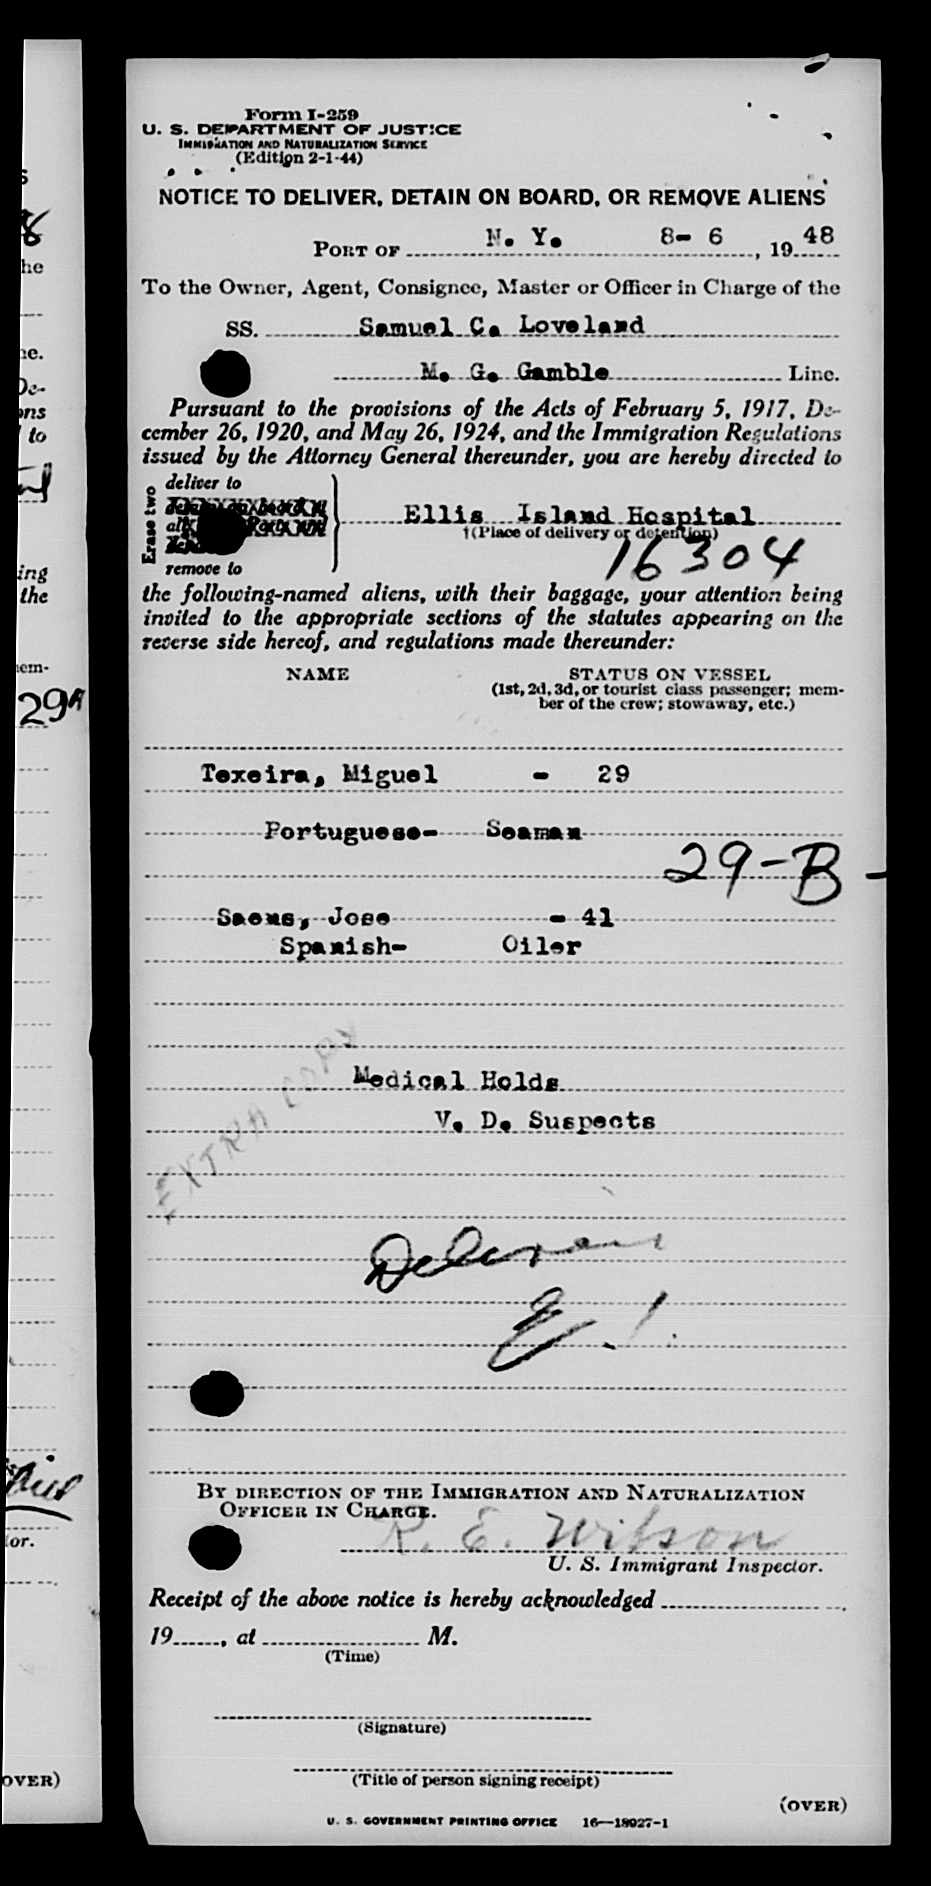 Form I-259
U. S. DEPARTMENT OF JUSTICE
IMMIGRATION AND NATURALIZATION SERVICE
(Edition 2-1-44)
NOTICE TO DELIVER, DETAIN ON BOARD, OR REMOVE ALIENS
PORT OF N. Y. 8- 6, 1948
To the Owner, Agent, Consignee, Master or Officer in Charge of the
SS. Samuel C. Loveland
M. G. Gamble Line.
Pursuant to the provisions of the Acts of February 5, 1917, De-
cember 26, 1920, and May 26, 1924, and the Immigration Regulations
issued by the Attorney General thereunder, you are hereby directed to
Erase two
deliver to
remove to
Ellis Island Hospital
†(Place of delivery or detention)
16304
the following-named aliens, with their baggage, your attention being
invited to the appropriate sections of the statutes appearing on the
reverse side hereof, and regulations made thereunder:
NAME STATUS ON VESSEL
(1st, 2d, 3d, or tourist class passenger; mem-
ber of the crew; stowaway, etc.)
Texeira, Miguel - 29
Portuguese- Seaman
29-B-
Saens, Jose - 41
Spanish- Oiler
EXTRA COPY
Medical Holds
V. D. Suspects
E.I.
BY DIRECTION OF THE IMMIGRATION AND NATURALIZATION
OFFICER IN CHARGE.
R. E. Wilson
U. S. Immigrant Inspector.
Receipt of the above notice is hereby acknowledged
19, at M.
(Time)
(Signature)
(Title of person signing receipt)
(OVER)
U. S. GOVERNMENT PRINTING OFFICE 16—18927-1
29A
(OVER)